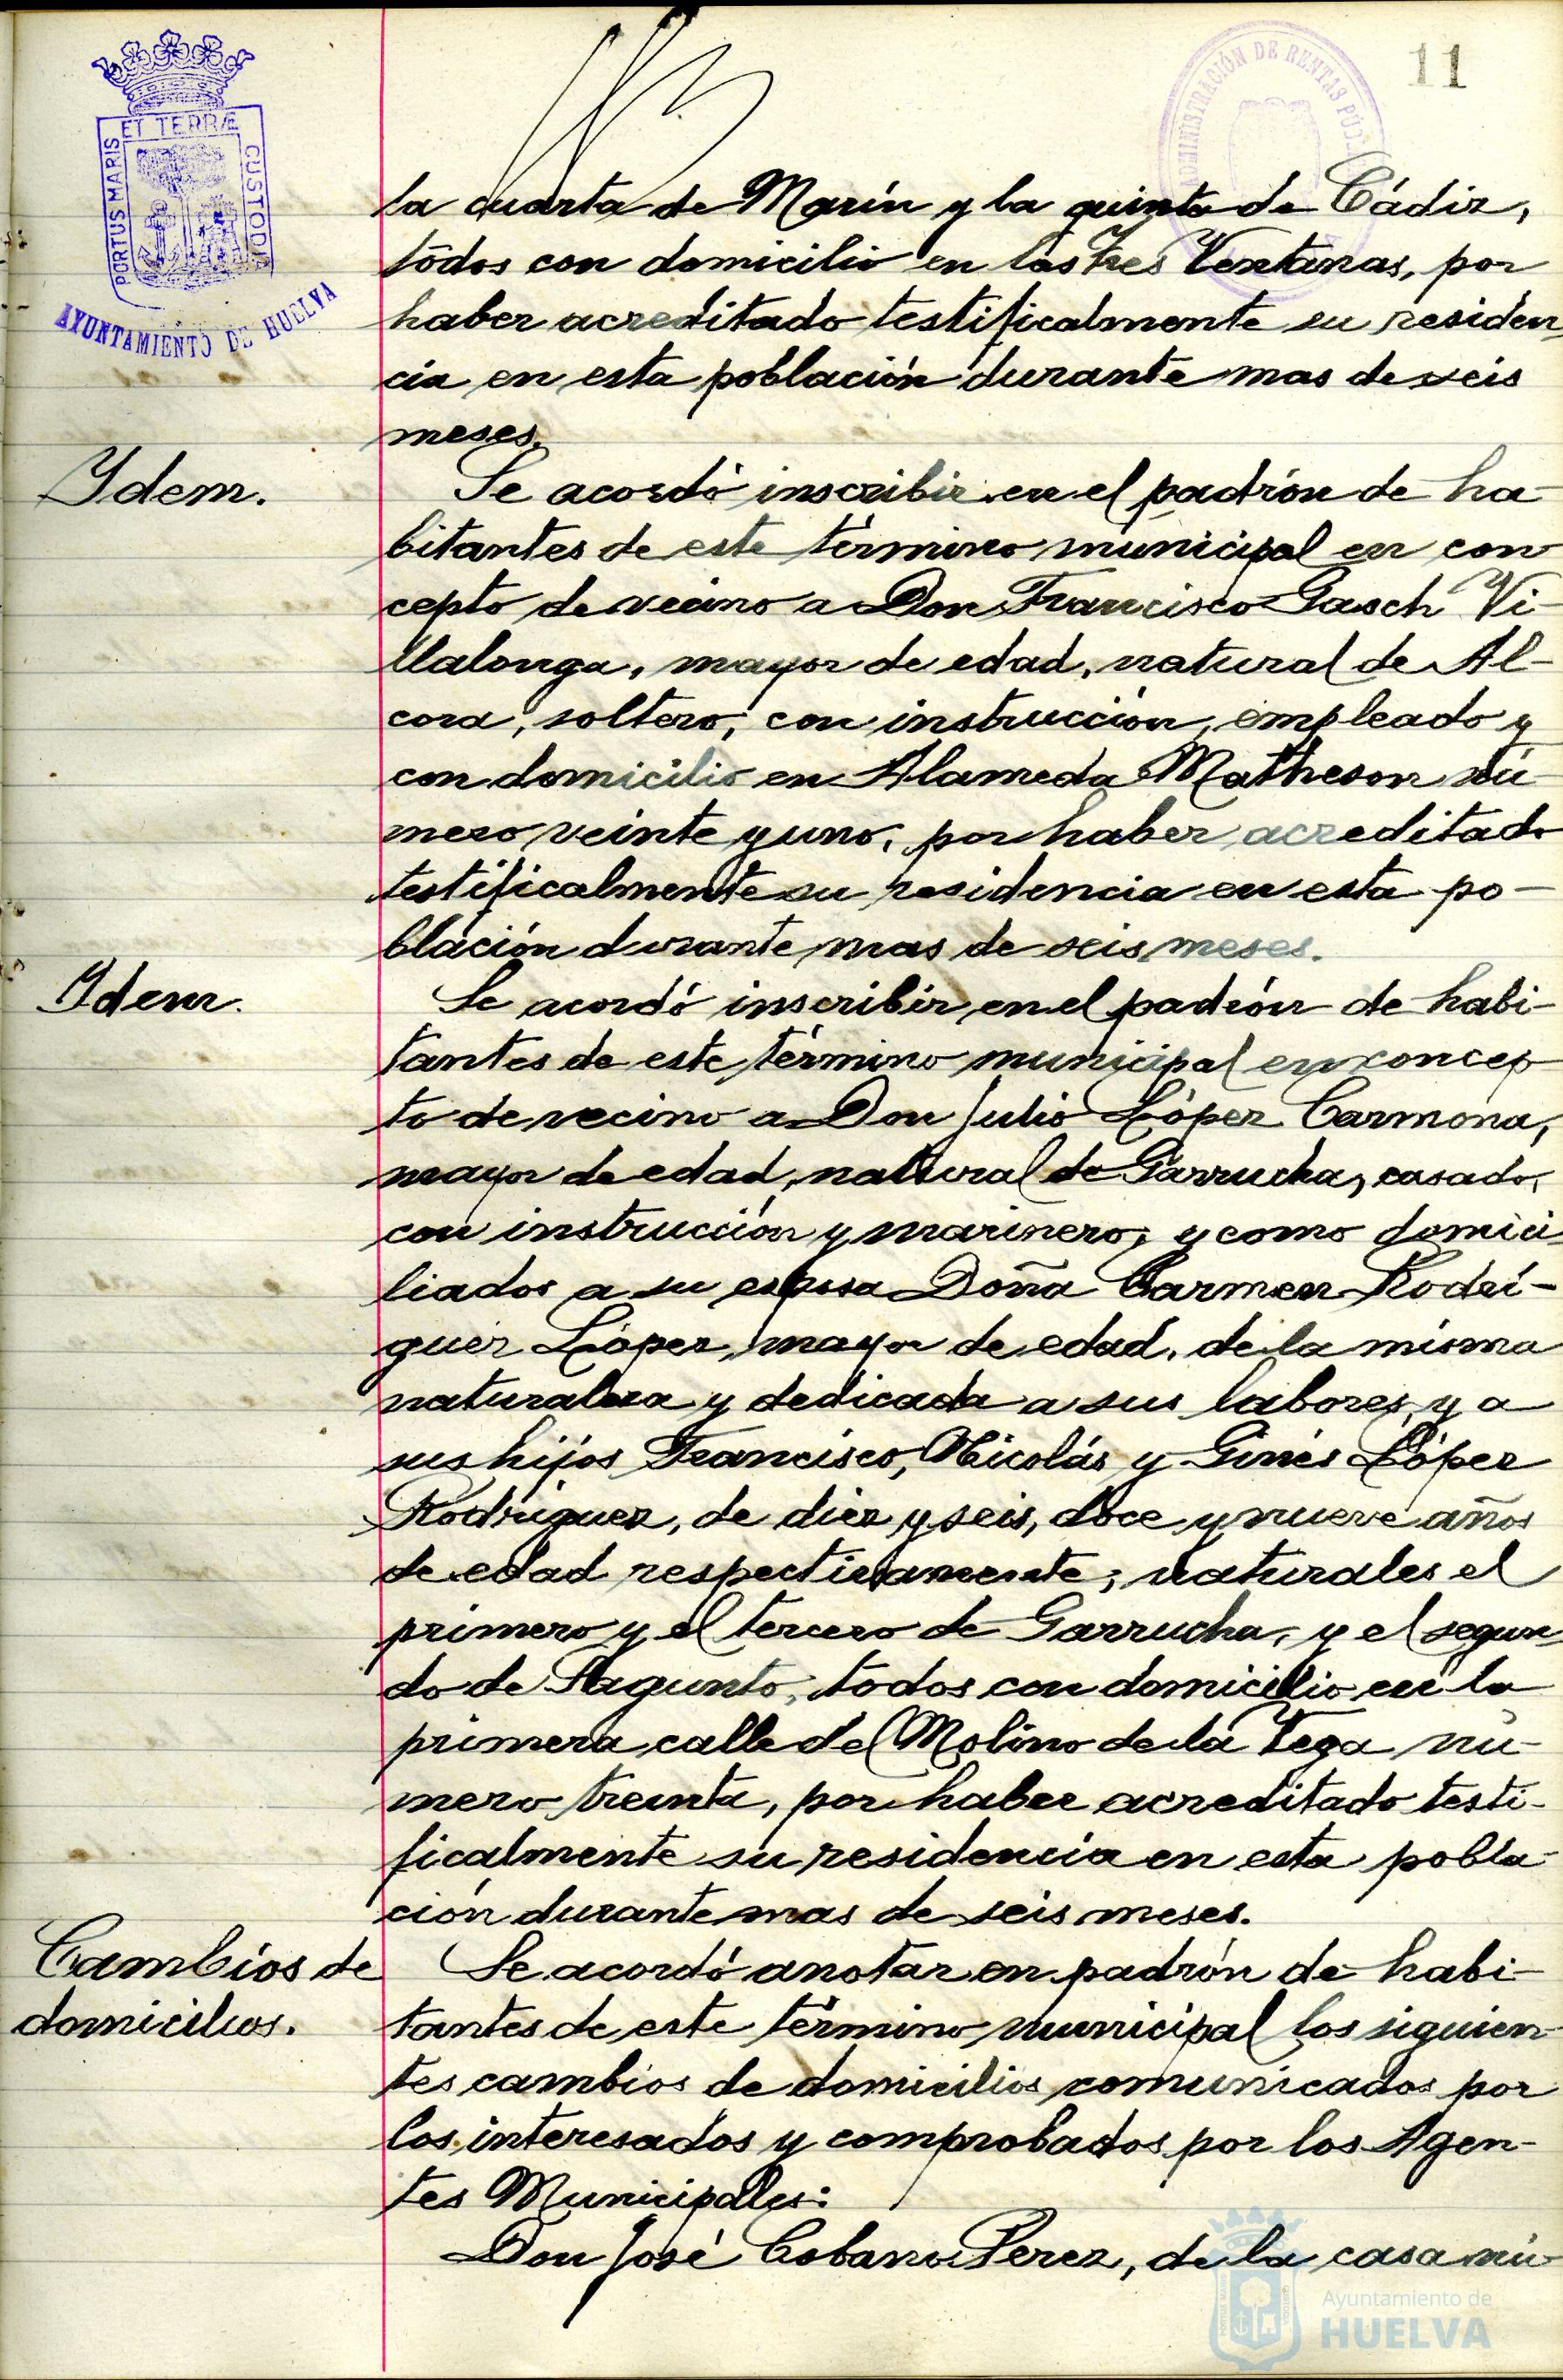 11
PORTUS MARIS ET TERRÆ CUSTODIA
AYUNTAMIENTO DE HUELVA
ADMINISTRACIÓN DE RENTAS PÚBL
la cuarta de Marín y la quinta de Cádiz,
todos con domicilio en las Tres Ventanas, por
haber acreditado testificalmente su residen
cia en esta población durante mas de seis
meses.
Ydem.
Se acordó inscribir en el padrón de ha-
bitantes de este término municipal en con
cepto de vecino a Don Francisco Gasch Vi-
llalonga, mayor de edad, natural de Al-
cora, soltero, con instrucción, empleado y
con domicilio en Alameda Matheson nú-
mero veinte y uno, por haber acreditado
testificalmente su residencia en esta po-
blación durante mas de seis meses.
Ydem.
Se acordó inscribir en el padrón de habi-
tantes de este término municipal en concep
to de vecino a Don Julio López Carmona,
mayor de edad, natural de Garrucha, casado,
con instrucción y marinero, y como domici
liados a su esposa Doña Carmen Rodrí-
guez López, mayor de edad, de la misma
naturaleza y dedicada a sus labores, y a
sus hijos Francisco, Nicolás y Ginés López
Rodriguez, de diez y seis, doce y nueve años
de edad respectivamente, naturales el
primero y el tercero de Garrucha, y el segun
do de Sagunto, todos con domicilio en la
primera calle del Molino de la Vega nú-
mero treinta, por haber acreditado testi-
ficalmente su residencia en esta pobla-
ción durante mas de seis meses.
Cambios de
domicilios.
Se acordó anotar en padrón de habi-
tantes de este término municipal los siguien-
tes cambios de domicilios comunicados por
los interesados y comprobados por los Agen-
tes Municipales:
Don José Cobano Perez, de la casa nú-
Ayuntamiento de
HUELVA